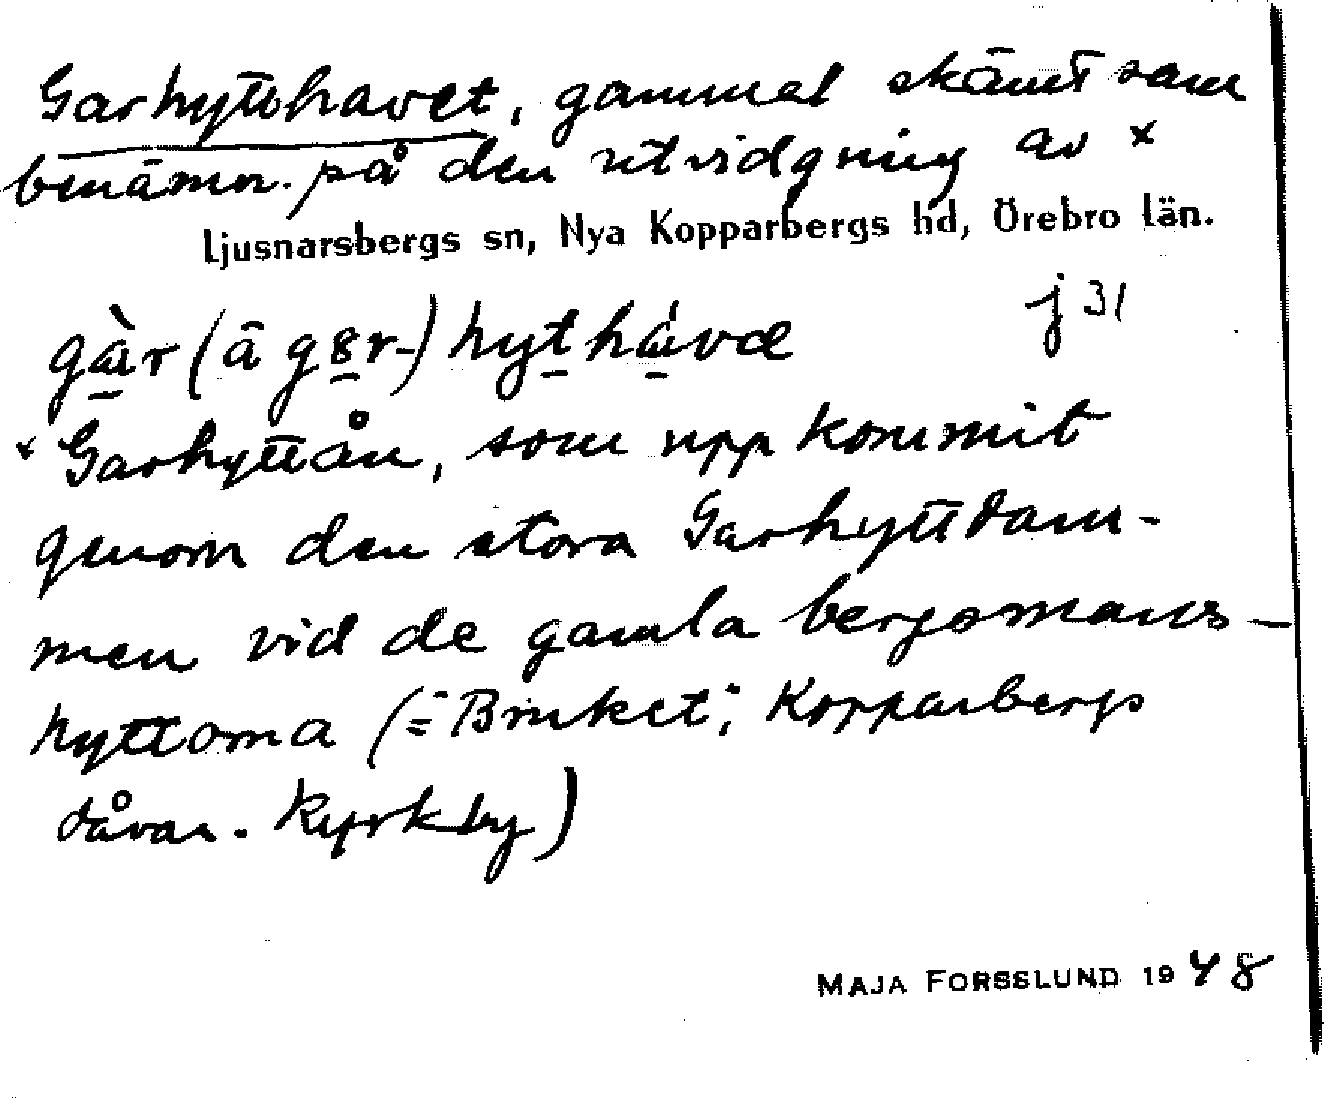 Garhyttehavet, gammal skämtsam
benämn. på den utvidgning av x
Ljusnarsbergs sn, Nya Kopparbergs hd, Örebro län.
j 31
x Garhyttån, som uppkommit
genom den stora Garhyttdam-
men vid de gamla bergsmans-
hyttorna (="Bruket"; Kopparbergs
dåvar. kyrkby)
MAJA FORSSLUND 1948